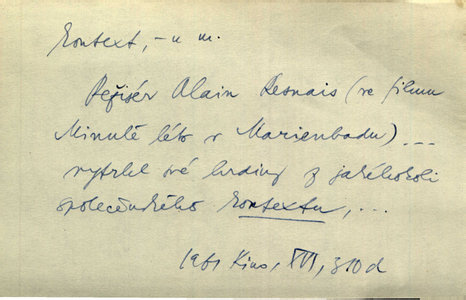 kontext, -u m.
Režisér Alain Resnais (ve filmu
Minulé léto v Marienbadu) ...
vytrhl své hrdiny z jakéhokoli
společenského kontextu, ...
1961 Kino, XVI, 310d